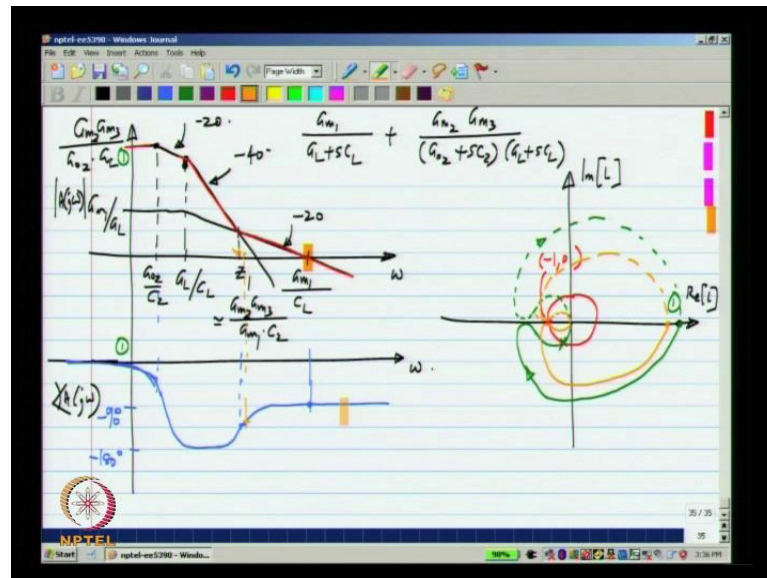 nptel-ee5390 - Windows Journal
File Edit View Insert Actions Tools Help
Page Width
B I
Gm2 Gm3 / Go2 · GL
①
-20
-40
Gm1 / GL+sCL + Gm2 Gm3 / (Go2+sC2)(GL+sCL)
|A(jω)|
Gm1/GL
-20
ω
Go2/C2
GL/CL
Z1
Gm1/CL
≃ Gm2 Gm3 / Gm1 · C2
Im[L]
(-1,0)
①
Re[L]
①
ω
∠A(jω)
-90
-180°
NPTEL
35 / 35
35
Start
nptel-ee5390 - Windo...
98%
3:36 PM